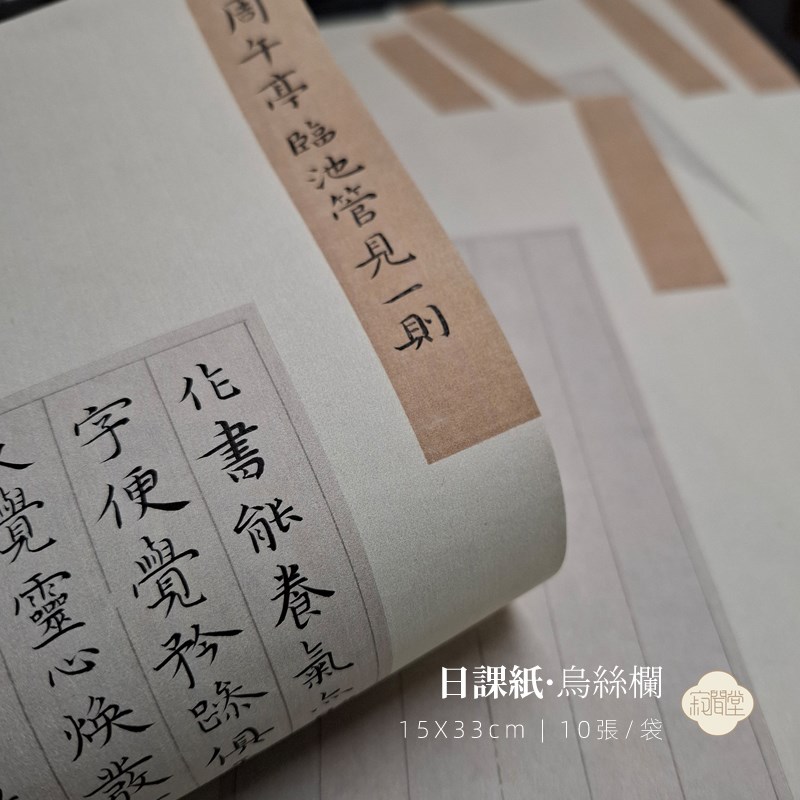 周午亭臨池管見一則
作書能養氣
字便覺矜躁俱
又覺靈心煥發
日課紙·烏絲欄
15X33cm | 10張/袋
寂閒堂